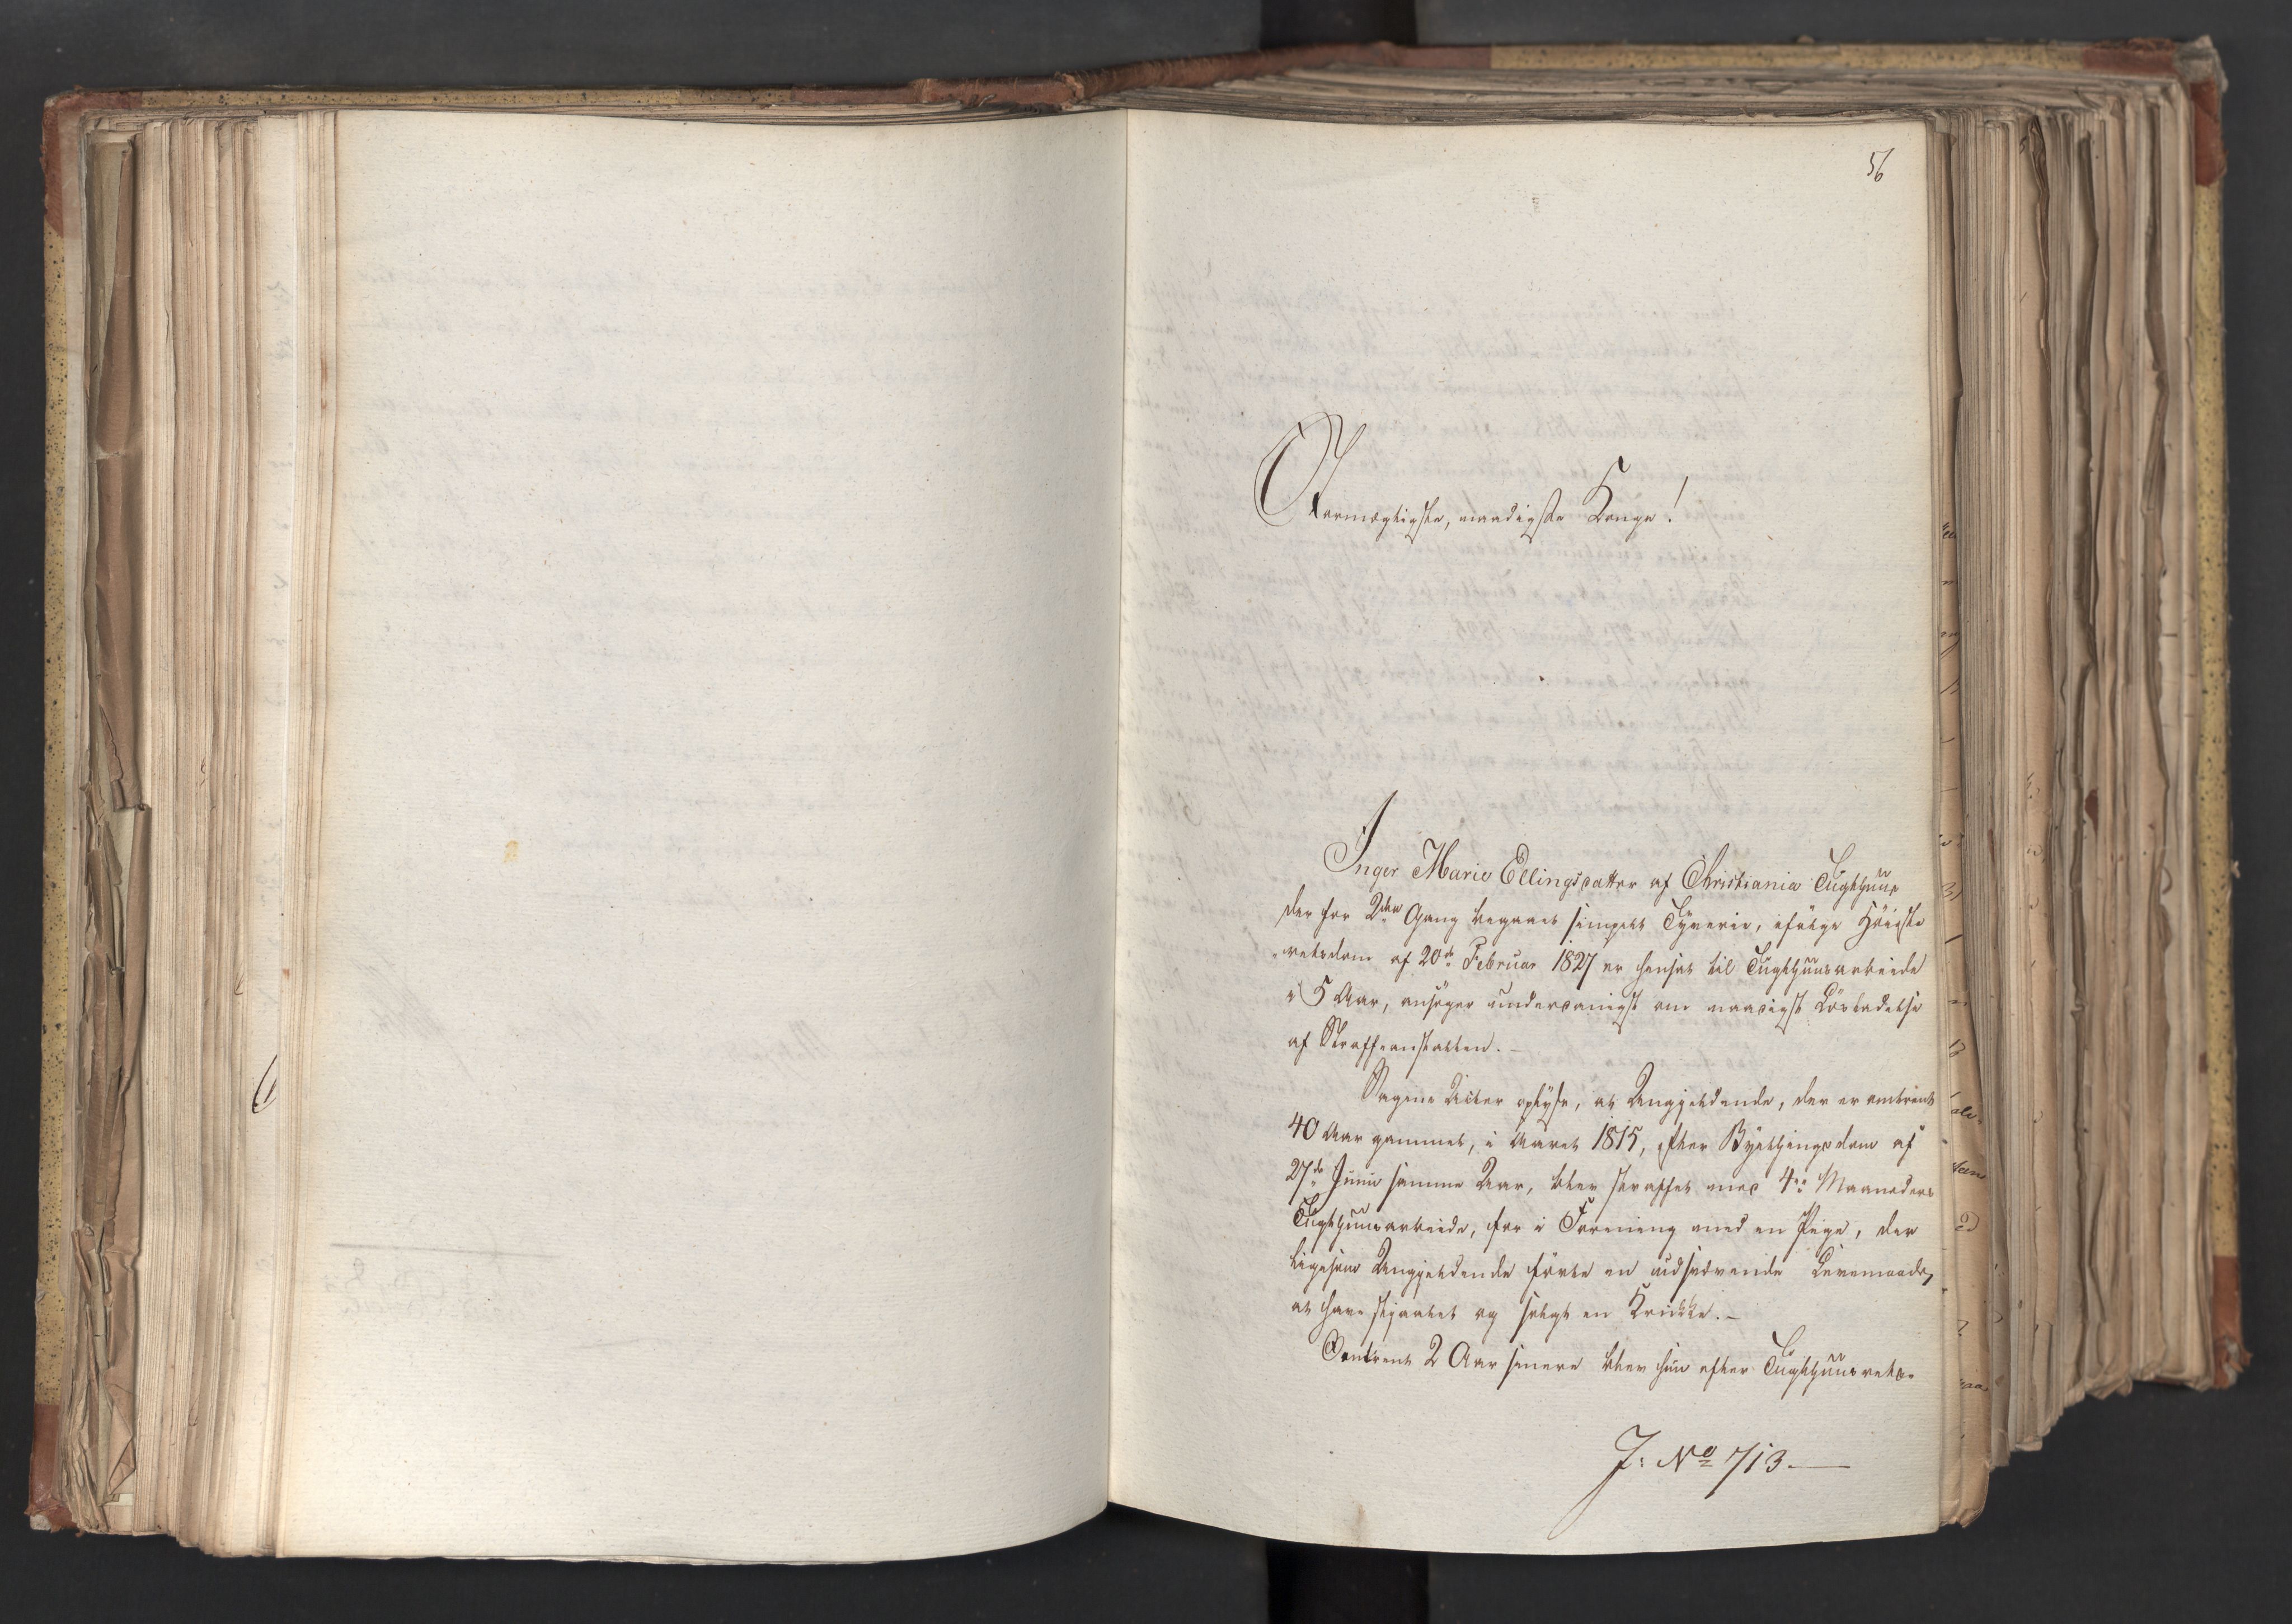 56
Stormægtigste, naadigste Konge!
Inger Marie Ellingsdatter af Christiania Tugthuus
der for 2den Gang begaaet simpelt Tyverie, ifølge Høieste
retsdom af 20de Februar 1827 er hensat til Tugthuusarbeide
i 5 Aar, ansøger underdanigst om naadigst Løsladelse
af Straffeanstalten. –
Sagens Acter oplyse, at Angjeldende, der er omtrent
40 Aar gammel, i Aaret 1815, efter Byethingsdom af
27de Juni samme Aar, blev straffet med 4re Maaneders
Tugthuusarbeide, for i Forening med en Pige, der
ligesom Angjeldende førte en udsvævende Levemaade,
at have stjaalet og solgt en Krikke. –
Omtrent 2 Aar senere blev hun efter Tugthuusrets-
J: No 713. —